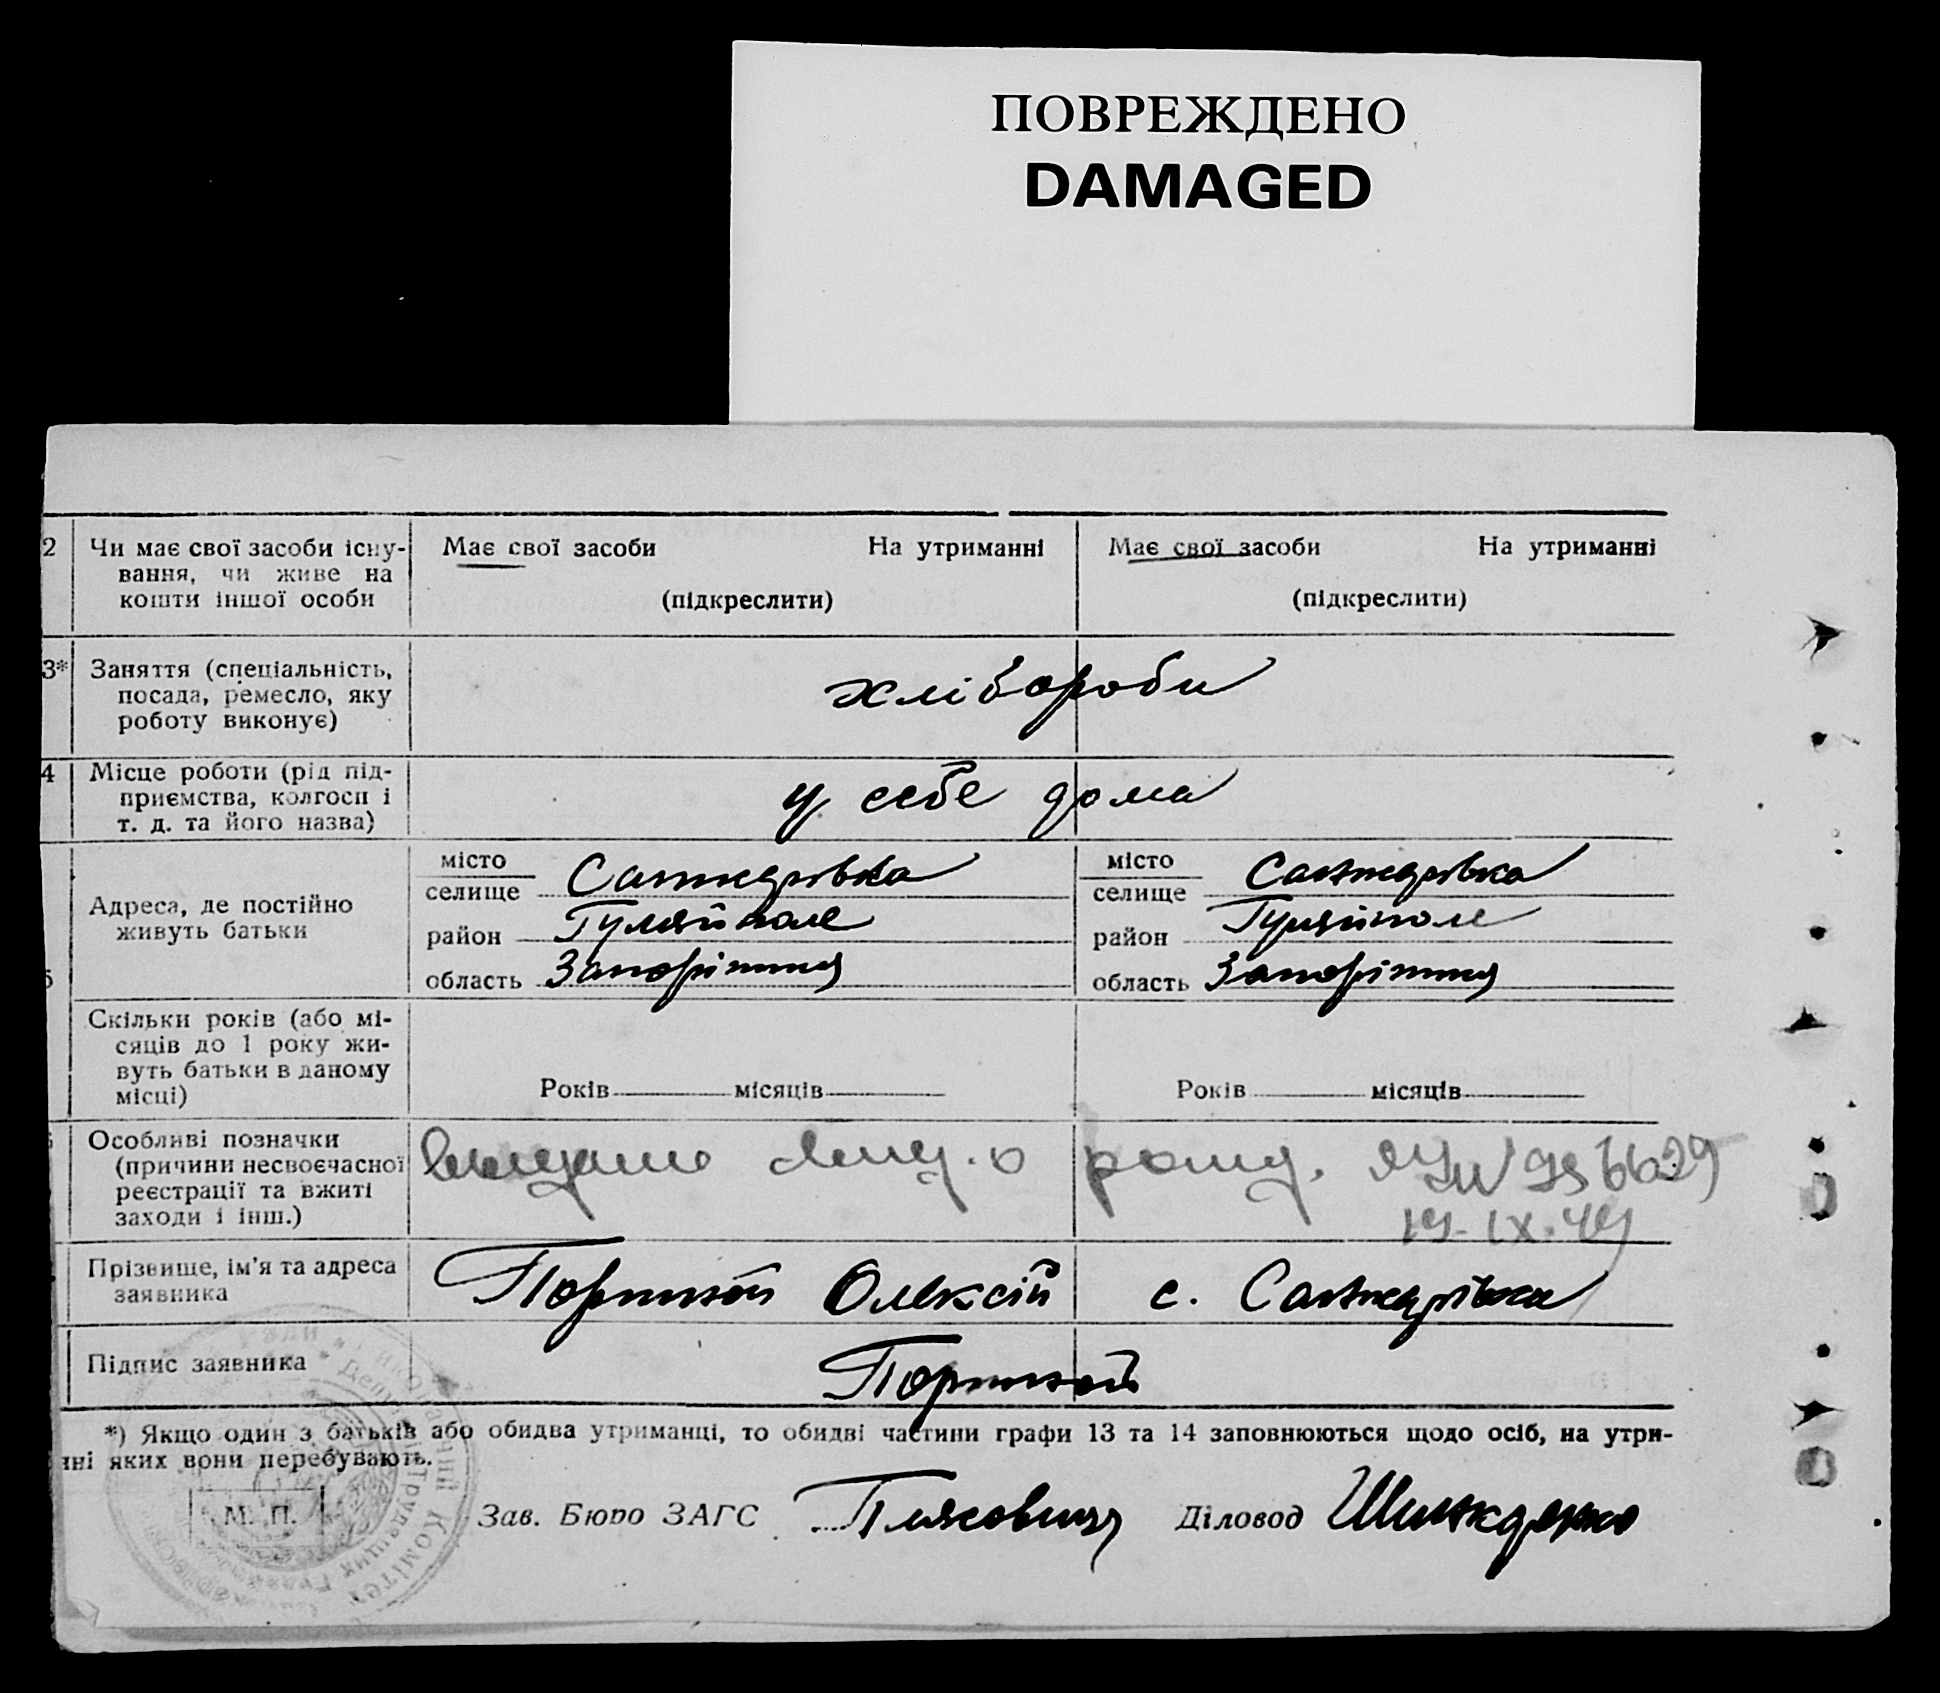 ПОВРЕЖДЕНО
DAMAGED
2 Чи має свої засоби існу- Має свої засоби На утриманні Має свої засоби На утриманні
вання, чи живе на
кошти іншої особи (підкреслити) (підкреслити)
3* Заняття (спеціальність,
посада, ремесло, яку хлібороби
роботу виконує)
4 Місце роботи (рід під-
приємства, колгосп і у себе дома
т. д. та його назва)
місто місто
селище Санжарівка селище Санжарівка
Адреса, де постійно
живуть батьки
район Гуляйполе район Гуляйполе
область Запоріжжя область Запоріжжя
Скільки років (або мі-
сяців до 1 року жи-
вуть батьки в даному
місці) Років місяців Років місяців
Особливі позначки
(причини несвоєчасної
реєстрації та вжиті
заходи і інш.)
Прізвище, ім'я та адреса
заявника Олексій с. Санжарівка
Підпис заявника
*) Якщо один з батьків або обидва утриманці, то обидві частини графи 13 та 14 заповнюються щодо осіб, на утри-
нні яких вони перебувають.
М. П. Зав. Бюро ЗАГС Діловод